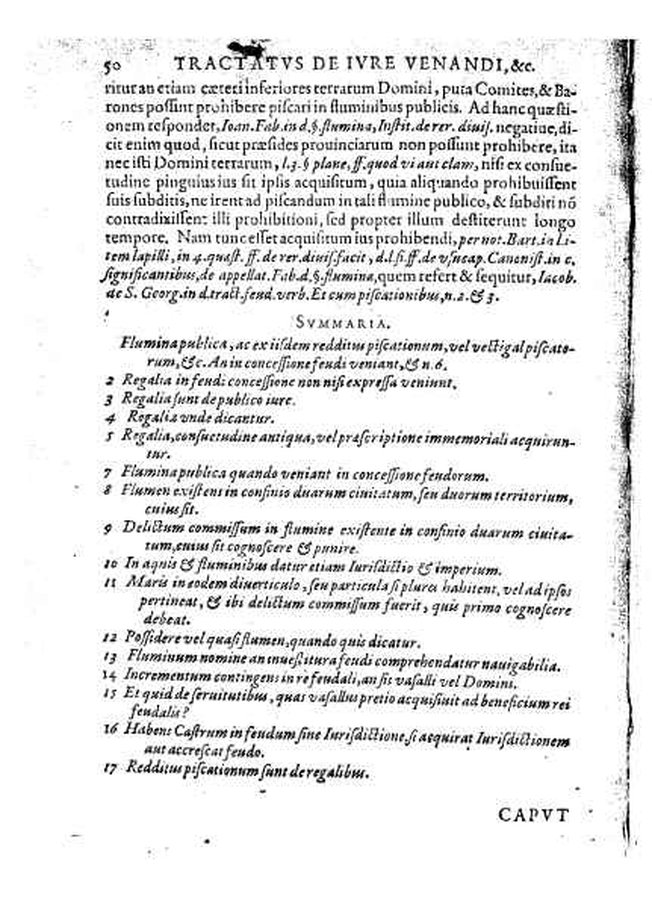 50 TRACTATVS DE IVRE VENANDI, &c.
ritur an etiam cæteri inferiores terrarum Domini, puta Comites, & Ba-
rones possint prohibere piscari in fluminibus publicis. Ad hanc quæsti-
onem respondet, Ioan. Fab. in d. §. flumina, Instit. de rer. diuis. negatiue, di-
cit enim quod, sicut præsides prouinciarum non possunt prohibere, ita
nec isti Domini terrarum, l. 3. § plane, ff. quod vi aut clam, nisi ex consue-
tudine pinguius ius sit ipsis acquisitum, quia aliquando prohibuissent
suis subditis, ne irent ad piscandum in tali flumine publico, & subditi nō
contradixissent illi prohibitioni, sed propter illum destiterunt longo
tempore. Nam tunc esset acquisitum ius prohibendi, per not. Bart. in Li-
tem lapilli, in 4. quæst. ff. de rer. diuis. facit, d. l. si. ff. de vsucap. Canonist. in c.
significantibus, de appellat. Fab. d. §. flumina, quem refert & sequitur, Iacob.
de S. Georg. in d. tract. feud. verb. Et cum piscationibus, n. 2. & 3.
SVMMARIA.
Flumina publica, ac ex iisdem redditus piscationum, vel vectigal piscato-
rum, &c. An in concessione feudi veniant, & n. 6.
2 Regalia in feudi concessione non nisi expressa veniunt.
3 Regalia sunt de publico iure.
4 Regalia vnde dicantur.
5 Regalia, consuetudine antiqua, vel præscriptione immemoriali acquirun-
tur.
7 Flumina publica quando veniant in concessione feudorum.
8 Flumen existens in confinio duarum ciuitatum, seu duorum territorium,
cuius sit.
9 Delictum commissum in flumine existente in confinio duarum ciuita-
tum, cuius sit cognoscere & punire.
10 In aquis & fluminibus datur etiam Iurisdictio & imperium.
11 Maris in eodem diuerticulo, seu particula si plures habitent, vel ad ipsos
pertineat, & ibi delictum commissum fuerit, quis primo cognoscere
debeat.
12 Possidere vel quasi flumen, quando quis dicatur.
13 Fluminum nomine an inuestitura feudi comprehendatur nauigabilia.
14 Incrementum contingens in re feudali, an sit vasalli vel Domini.
15 Et quid de seruitutibus, quas vasallus pretio acquisiuit ad beneficium rei
feudalis?
16 Habens Castrum in feudum sine Iurisdictione, si acquirat Iurisdictionem
aut accrescat feudo.
17 Redditus piscationum sunt de regalibus.
CAPVT